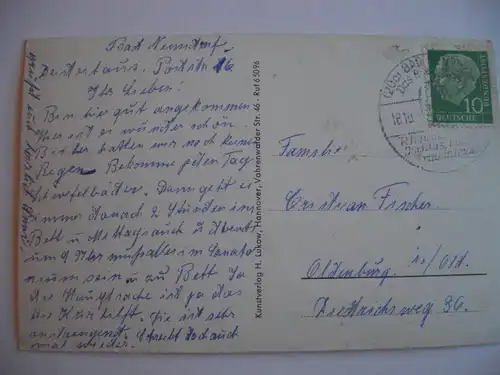 Bad Nenndorf.
Deisterhaus. Poststr. 16
Ihr Lieben!
Bin hier gut angekommen
Hier ist es wunder schön.
Bis her hatten wir noch keinen
Regen. Bekomme jeden Tag
Schwefelbäder. Dann geht es
immer danach 2 Stunden ins
Bett u. Mittags auch 2 Abends
um 9 Uhr muß alles im Sanato-
rium sein u. zu Bett Ja
die Hauptsache ist ja das
die Kur hilft. Sie ist sehr
anstrengend. Schreibt doch auch
mal wieder.
Kunstverlag H. Lukow, Hannover, Vahrenwalder Str. 46 - Ruf 65096
(20a) BAD
18.10
10
DEUTSCHE
BUNDESPOST
Familie
Christian Fischer
Oldenburg i/Old.
Dietrichsweg 36.